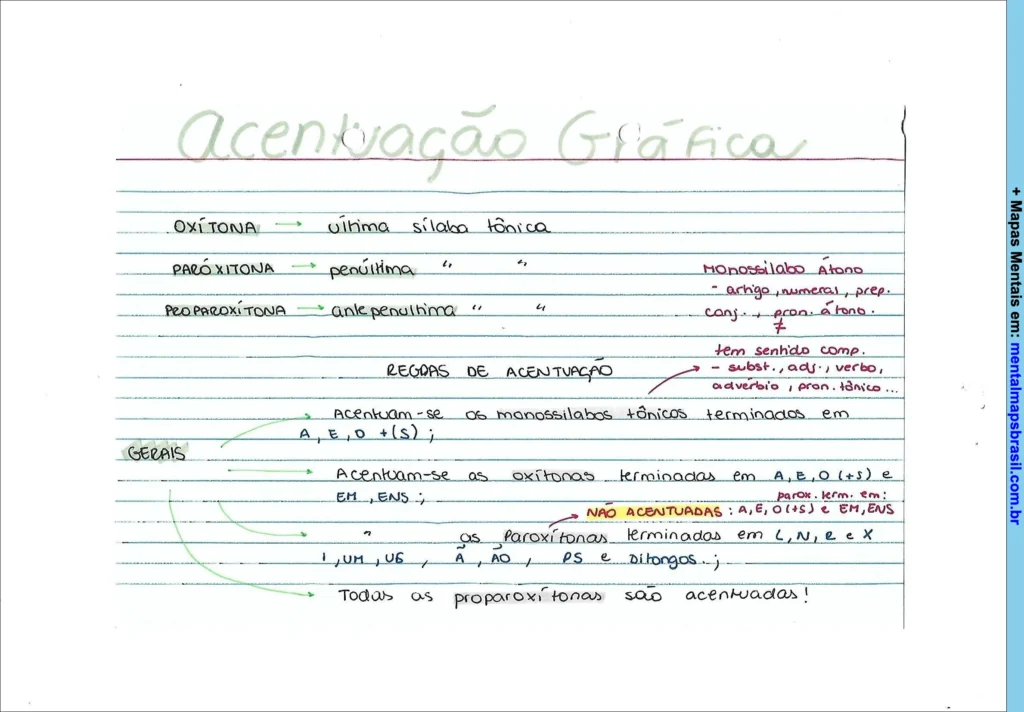 Acentuação Gráfica
OXÍTONA → última sílaba tônica
PARÓXITONA → penúltima " "
PROPAROXÍTONA → antepenultima " "
Monossílabo Átono
- artigo, numeral, prep.
conj., pron. átono.
≠
tem sentido comp.
- subst., adj., verbo,
advérbio, pron. tônico...
REGRAS DE ACENTUAÇÃO
GERAIS
Acentuam-se os monossilabos tônicos terminados em
A, E, O +(S) ;
Acentuam-se as oxítonas terminadas em A, E, O (+S) e
EM, ENS ;
parox. term. em:
NÃO ACENTUADAS : A, E, O (+S) e EM, ENS
" as Paroxítonas terminadas em L, N, R e X
I, UM, US, Ã, ÃO, PS e Ditongos. ;
Todas as proparoxítonas são acentuadas!
+ Mapas Mentais em: mentalmapsbrasil.com.br